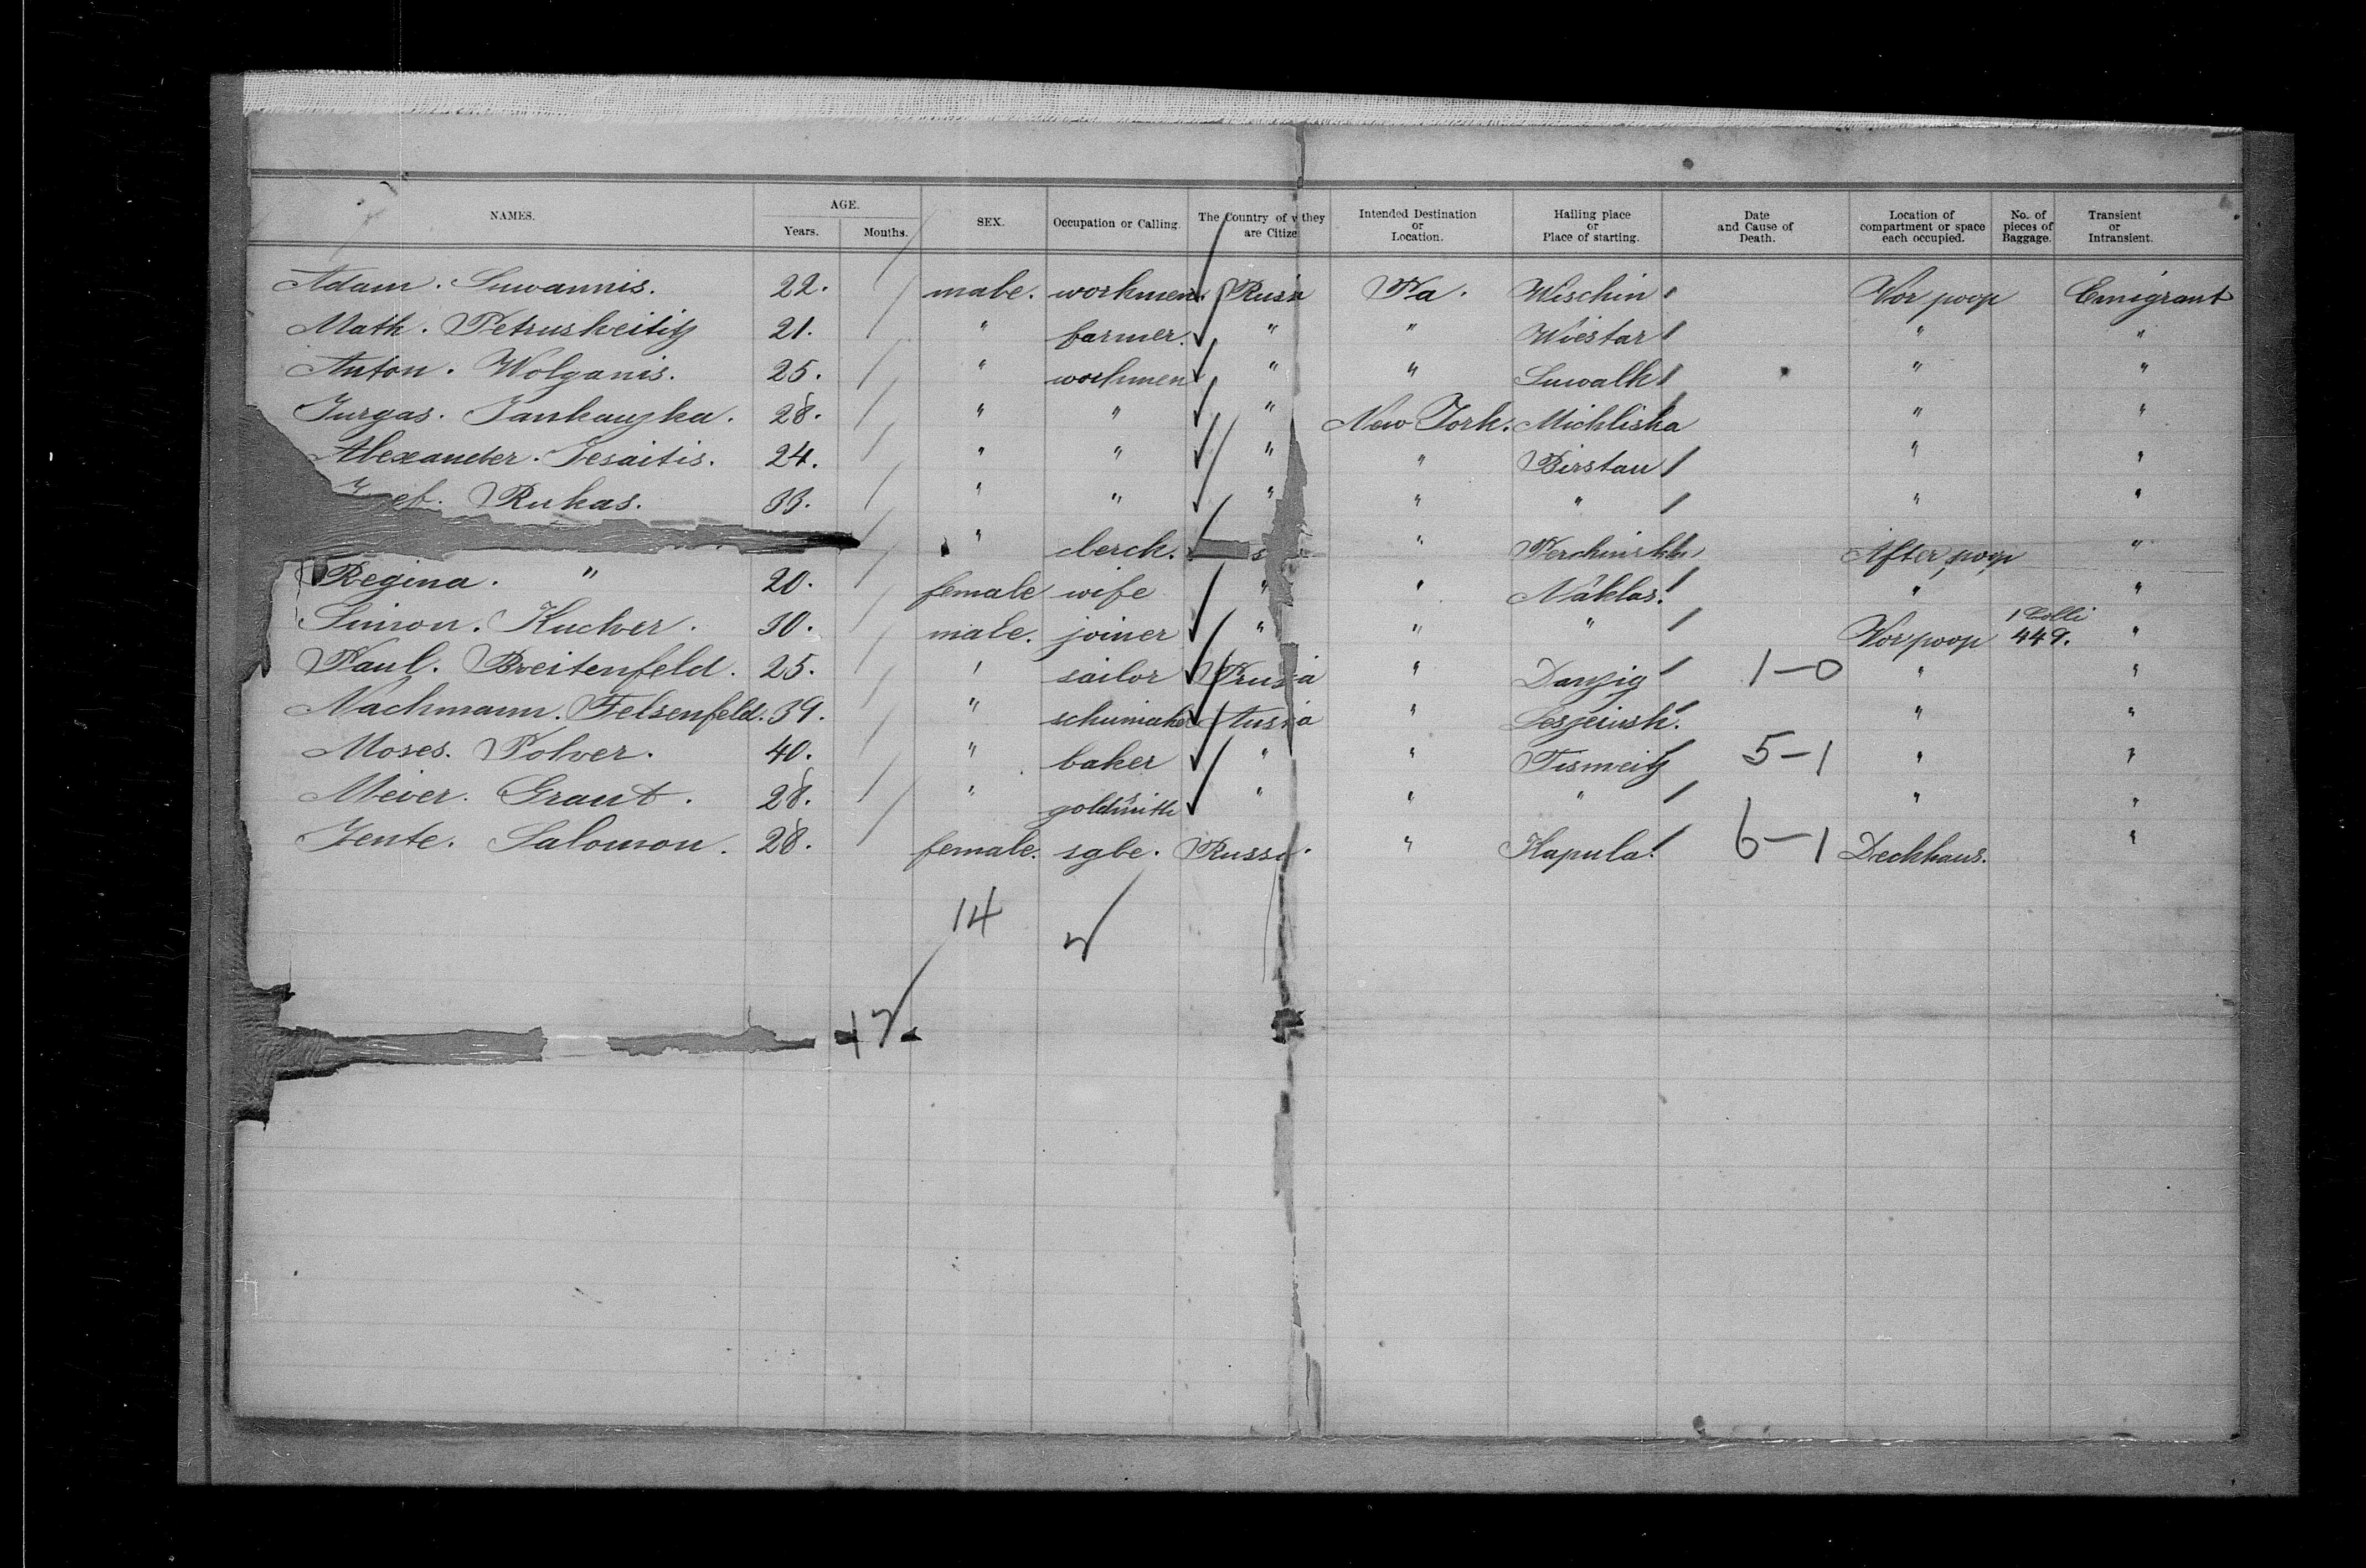 NAMES. AGE. Years. Months. SEX. Occupation or Calling. The Country of w they are Citize Intended Destination or Location. Hailing place or Place of starting. Date and Cause of Death. Location of compartment or space each occupied. No. of pieces of Baggage. Transient or Intransient.
Adam. Suwannis. 22. male. workmen. Russi Pa. Wischin Vor poop Emigrant
Math. Petrusheitig 21. " farmer. " " Wiestar " "
Anton. Wolganis. 25. " workmen " " Suwalk " "
Jurgas. Jankauzka. 28. " " " New York. Michliska " "
Alexander. Jesaitis. 24. " " " " Birstau " "
ef. Rukas. 33. " " " " " " "
" clerck. " After poop "
Regina. " 20. female wife " " Naklas. " "
Simon. Kucher. 30. male. joiner " " " Vor poop 1 Colli 449. "
Paul. Breitenfeld. 25. " sailor Prussia " Danzig 1-0 " "
Nachmann. Felsenfeld. 39. " schumaker Ausria " " "
Moses. Polver. 40. " baker " " Tismeitz 5-1 " "
Meier. Graut. 28. " goldsmith " " " " "
Jente. Salomon. 28. female. sgle. Russi. " Kapula. 6-1 Deckhaus. "
14